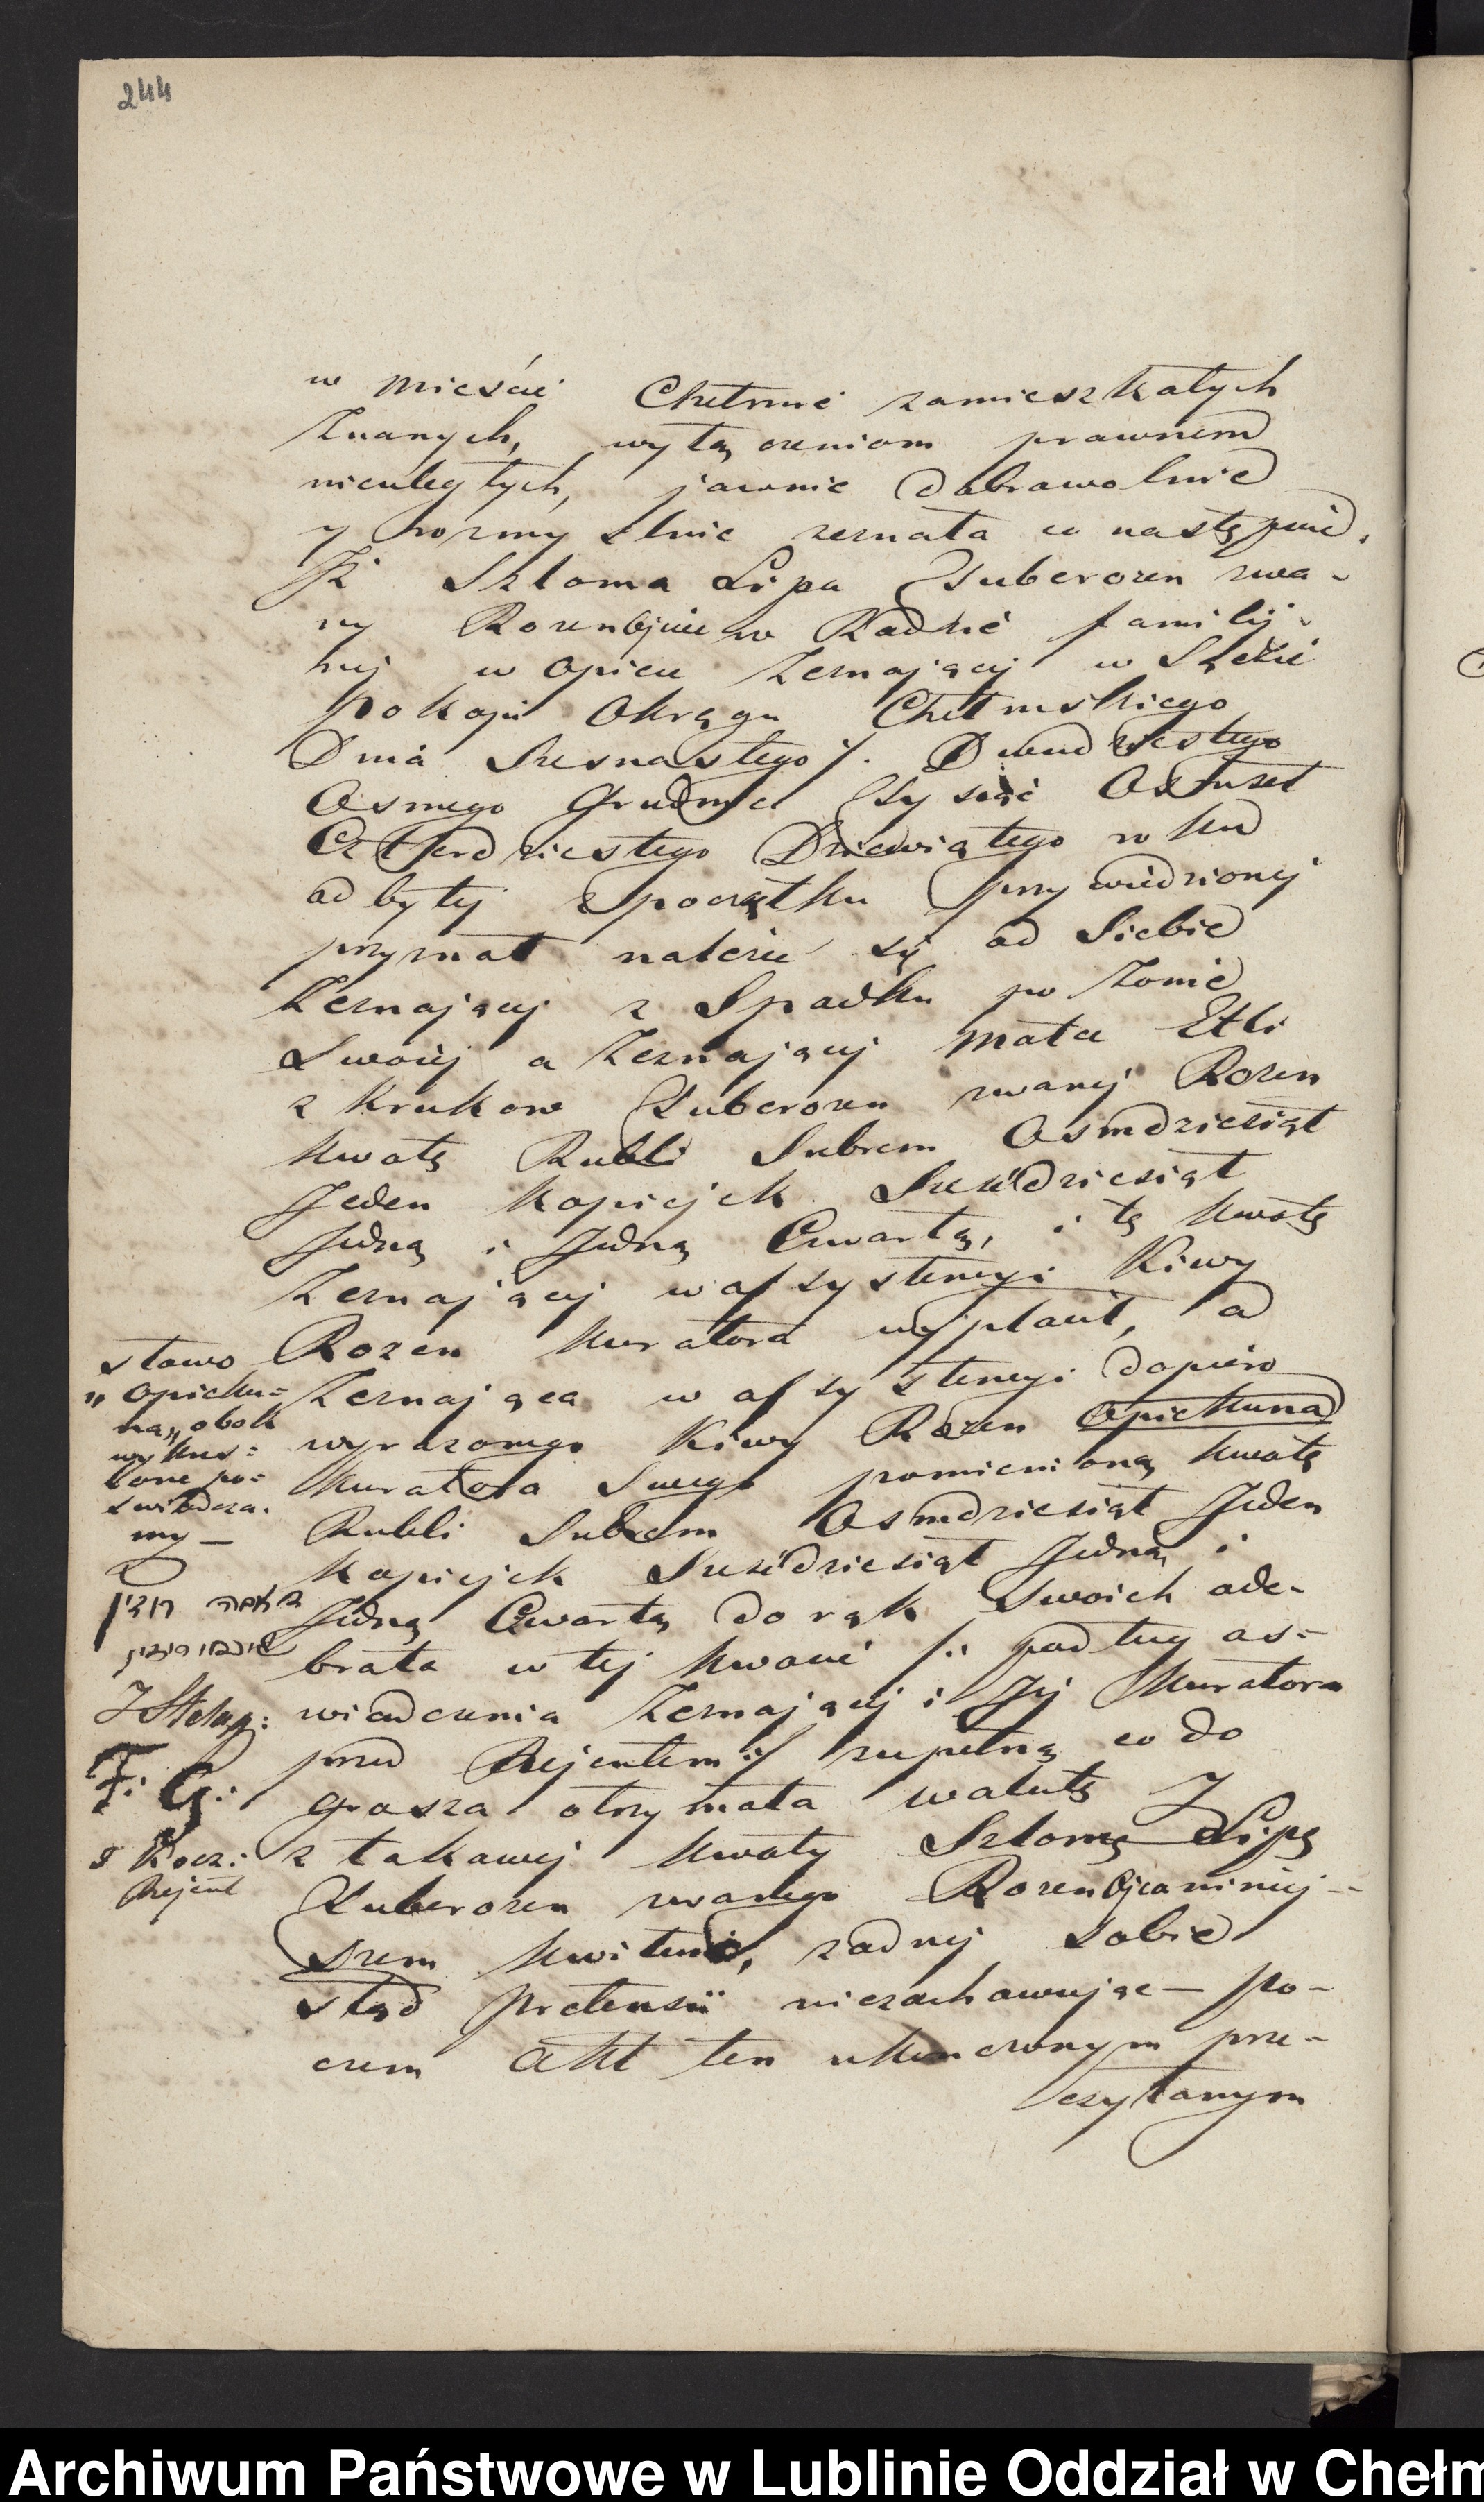 244
w mieście Chełmie zamieszkałych
znanych, wyłączeniom prawnem
nieuległych, jawnie dobrowolnie
y rozmyślnie zeznała co następuie,
Iż Szloma Lipa Zuberozen zwa-
ny Rozenbojm w Radzie familij-
nej w opiece zeznającej w Sądzie
Pokoju Okręgu Chełmskiego
Dnia Szesnastego /. Dwudziestego
Osmego Grudnia Tysiąc Osmset
Czterdziestego Dziewiątego roku
odbytej z początku przywiedzionej
przyznał należeć się od Siebie
zeznającej z Spadku po żonie
Swoiej a zeznającej Matce Etli
z Kruków Zuberozen zwanej Rozen
kwotę Rubli Srebrem Osmdziesiąt
Jeden kopiejek Sześćdziesiąt
Jedną i Jedną Czwartą, i tę kwotę
zeznającej w assystencyi Kiwy
Rozen kuratora wypłacił, a
zeznająca w assystencyi dopiero
wyrażonego Kiwy Rozen opiekuna
kuratora Swego pomienioną kwotę
Rubli Srebrem Osmdziesiąt Jeden
kopiejek Sześćdziesiąt Jedną i
Jedną Czwartą do rąk Swoich ode-
brała w tej kwocie /: podług oś-
wiadczenia zeznającej i Jej kuratora
przed Rejentem :/ zupełną co do
grosza otrzymała walutę I
z takowej kwoty Szlomę Lipę
Zuberozen zwanego Rozenbojm niniej-
szem kwituie, żadnej sobie
stąd pretensii niezachowując – po-
czem Akt ten ukonczonym prze-
czytanym
słowo
„opieku-
na„ obok
wykres-
lone po-
świadcza-
my –
רוזין
רוזין
F. G.
Rejent
Archiwum Państwowe w Lublinie Oddział w Chełm